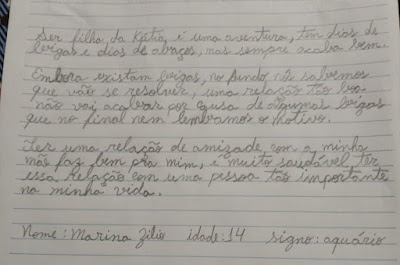 Ser filha da Kátia, é uma aventura, tem dias de
brigas e dias de abraços, mas sempre acaba bem.
Embora existam brigas, no fundo nós sabemos
que vão se resolver, uma relação tão boa
não vai acabar por causa de algumas brigas
que no final nem lembramos o motivo.
Ter uma relação de amizade com a minha
mãe faz bem pra mim, é muito saudável ter
essa relação com uma pessoa tão importante
na minha vida.
Nome: Marina Zilio idade: 14 signo: aquário